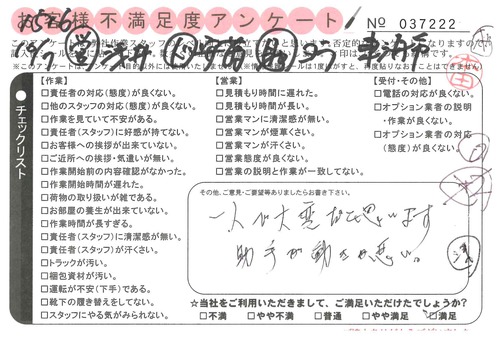 お客様不満足度アンケート
No 037222
チェックリスト
【作業】
□責任者の対応(態度)が良くない。
□他のスタッフの対応(態度)が良くない。
□作業を見ていて不安がある。
□責任者(スタッフ)に好感が持てない。
□お客様への挨拶が出来ていない。
□ご近所への挨拶・気遣いが無い。
□作業開始前の内容確認がなかった。
□作業開始時間が遅れた。
□荷物の取り扱いが雑である。
□お部屋の養生が出来ていない。
□作業時間が長すぎる。
□責任者(スタッフ)に清潔感が無い。
□責任者(スタッフ)が汗くさい。
□トラックが汚い。
□梱包資材が汚い。
□運転が不安(下手)である。
□靴下の履き替えをしてない。
□スタッフにやる気がみられない。
【営業】
□見積もり時間に遅れた。
□見積もり時間が長い。
□営業マンに清潔感が無い。
□営業マンが煙草くさい。
□営業マンが汗くさい。
□営業態度が良くない。
□営業の説明と作業が一致してない。
【受付・その他】
□電話の対応が良くない。
□オプション業者の説明
・作業が良くない。
□オプション業者の対応
(態度)が良くない。
その他、ご意見・ご要望等ありましたらお書き下さい。
一人が大変だと思います
助手が動きが悪い。
☆当社をご利用いただきまして、ご満足いただけたでしょうか?
□不満 □やや不満 □普通 □やや満足 □満足